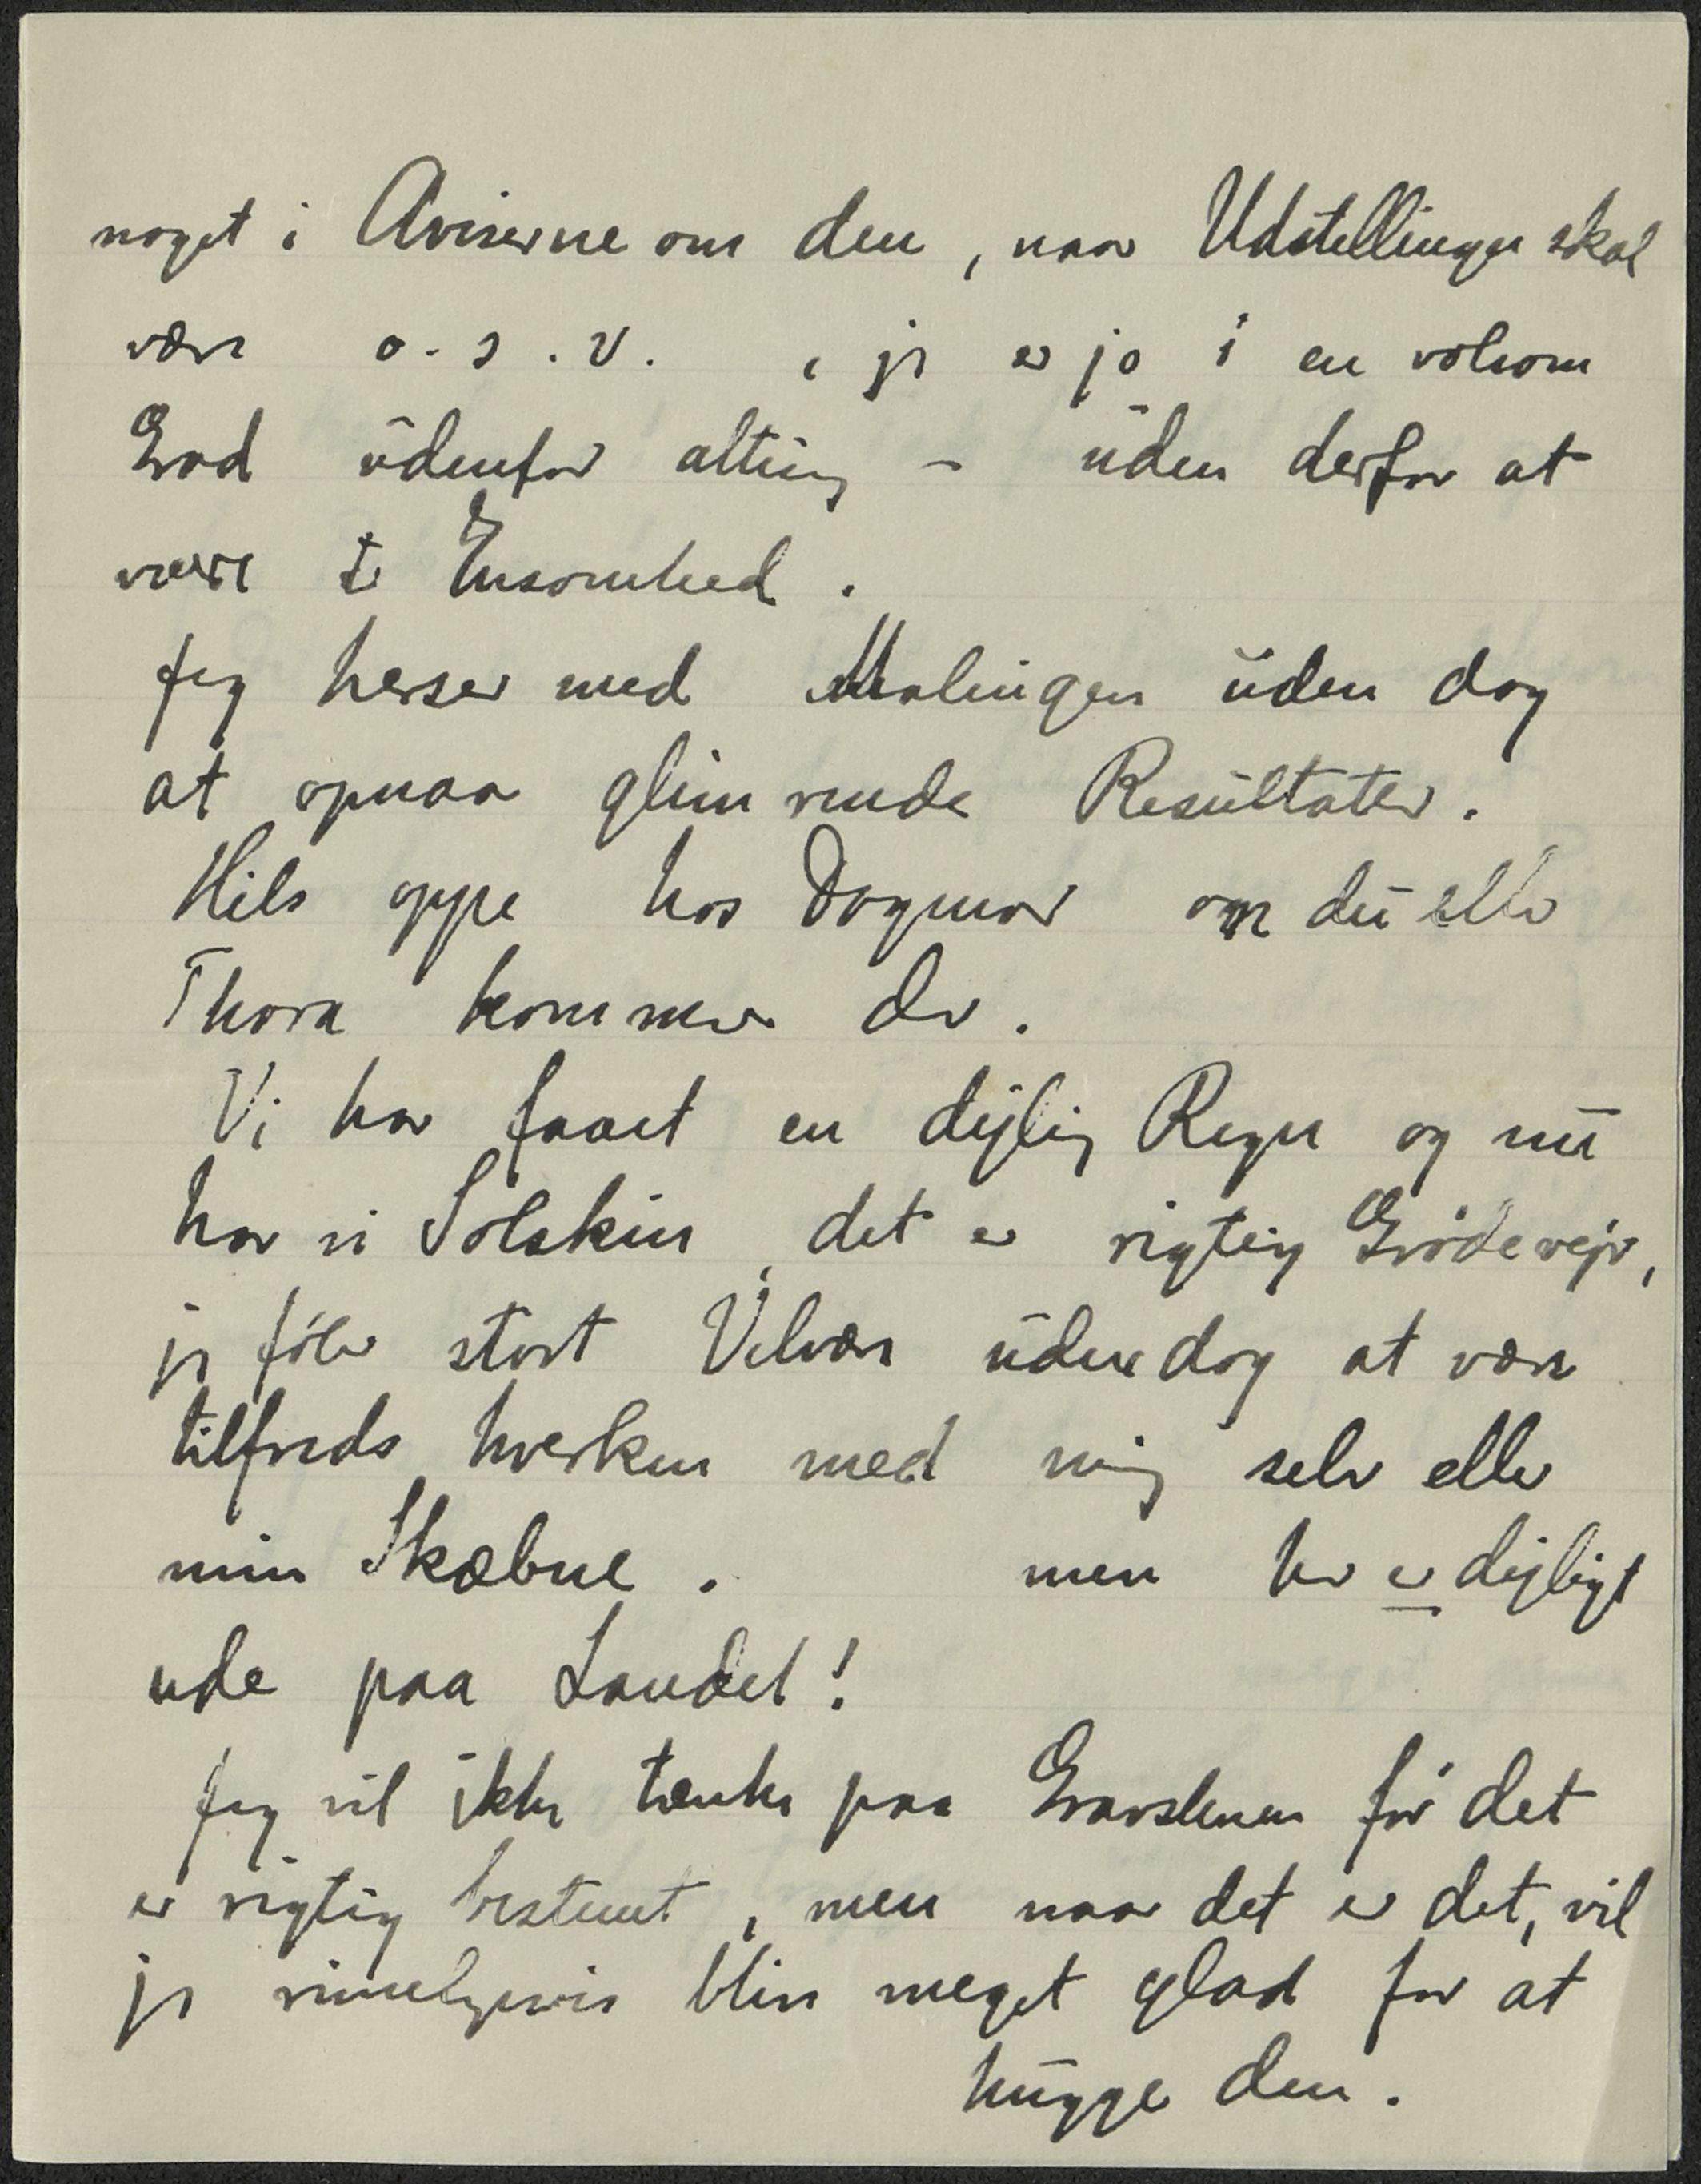 noget i Aviserne om den, naar Udstillingen skal
være o. s. v. , jeg er jo i en voldsom
Grad udenfor alting – uden derfor at
være i Ensomhed.
Jeg herser med Malingen uden dog
at opnaa glimrende Resultater.
Hils oppe hos Dagmar om du eller
Thora kommer der.
Vi har faaet en dejlig Regn og nu
har vi Solskin, det er rigtig Grödevejr,
jeg föler stort Velvære uden dog at være
tilfreds hverken med mig selv eller
min Skæbne. men her er dejligt
ude paa Landet!
Jeg vil ikke tænke paa Gravstenen för det
er rigtig bestemt, men naar det er det, vil
jeg rimeligvis blive meget glad for at
hugge den.